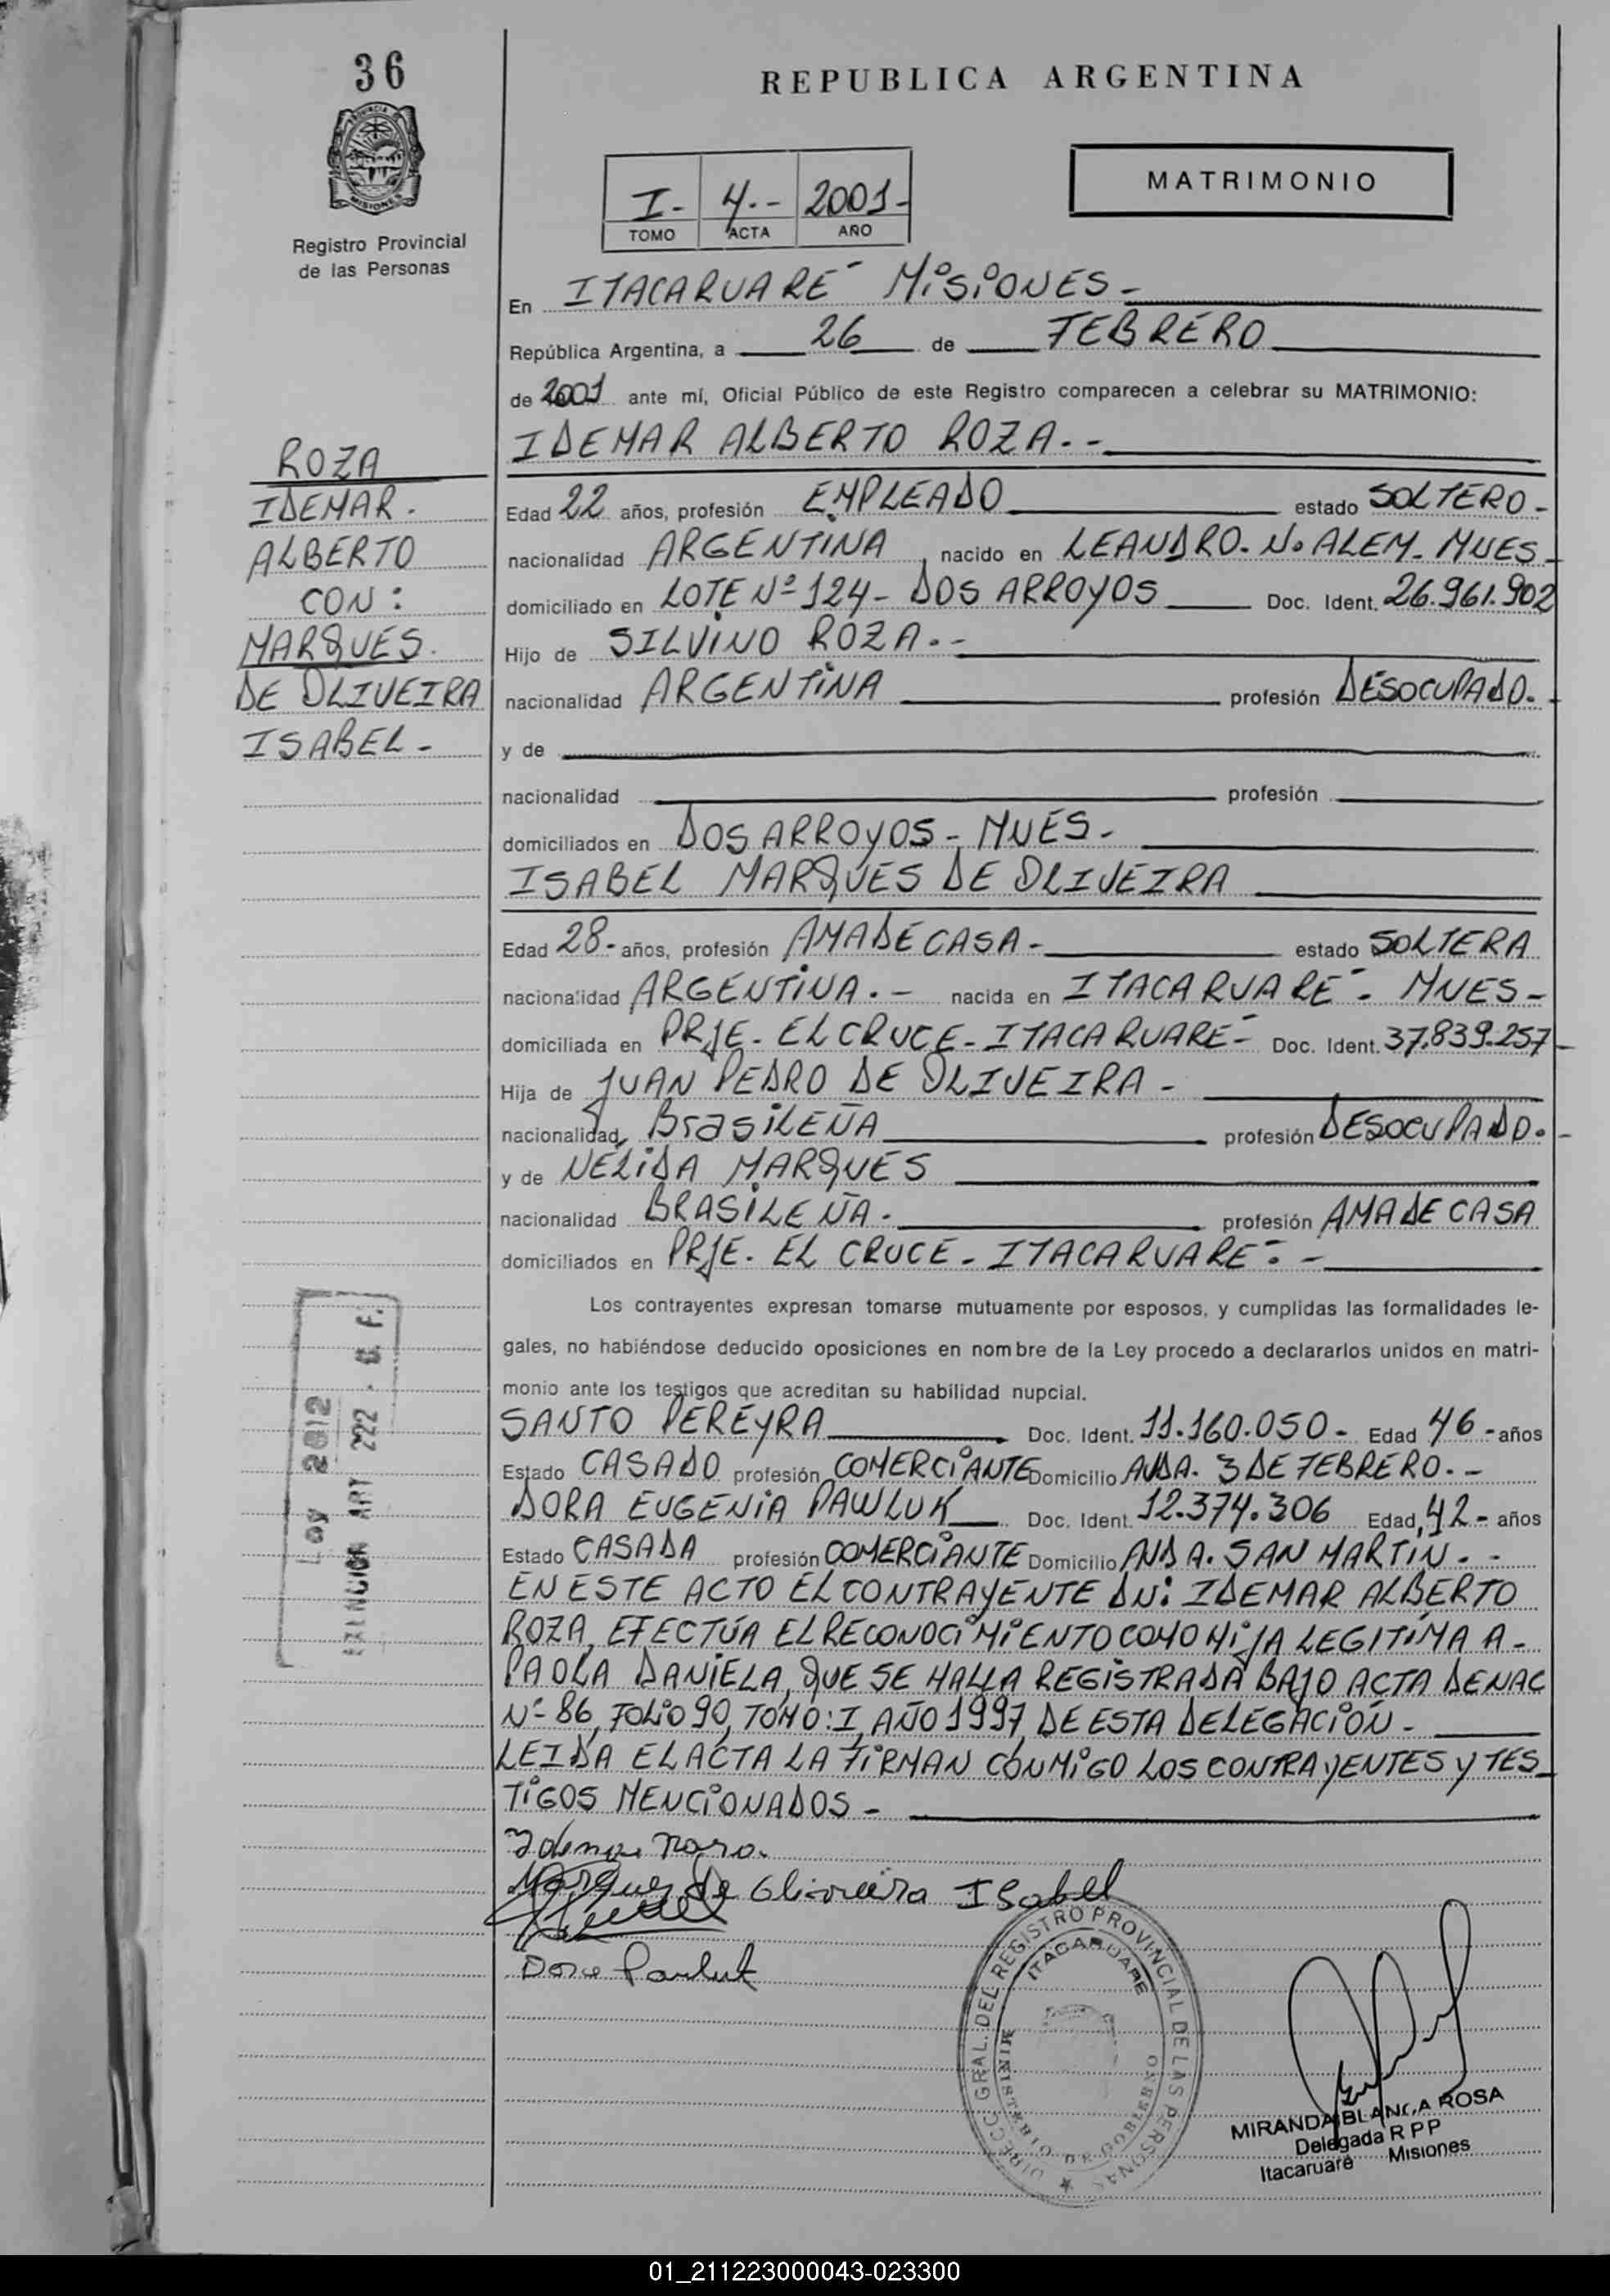 36
PROVINCIA
MISIONES
Registro Provincial
de las Personas
REPUBLICA ARGENTINA
MATRIMONIO
I- 4.-- 2001-
TOMO ACTA AÑO
En ITACARUARÉ MISIONES-
República Argentina, a 26 de FEBRERO
de 2001 ante mí, Oficial Público de este Registro comparecen a celebrar su MATRIMONIO:
IDEMAR ALBERTO ROZA.--
Edad 22 años, profesión EMPLEADO estado SOLTERO-
nacionalidad ARGENTINA, nacido en LEANDRO. N. ALEM. MNES-
domiciliado en LOTE Nº 124- DOS ARROYOS Doc. Ident. 26.961.902
Hijo de SILVINO ROZA.--
nacionalidad ARGENTINA profesión DESOCUPADO.-
y de
nacionalidad profesión
domiciliados en DOS ARROYOS- MNES-
ISABEL MARQUES DE OLIVEIRA
Edad 28- años, profesión AMA DE CASA- estado SOLTERA
nacionalidad ARGENTINA.- nacida en ITACARUARÉ- MNES-
domiciliada en PRJE- EL CRUCE- ITACARUARÉ- Doc. Ident. 37.839.257-
Hija de JUAN PEDRO DE OLIVEIRA-
nacionalidad BrasiLEÑA profesión DESOCUPADO.-
y de NELIDA MARQUES
nacionalidad BRASILEÑA. profesión AMA DE CASA
domiciliados en PRJE- EL CRUCE- ITACARUARÉ.-
Los contrayentes expresan tomarse mutuamente por esposos, y cumplidas las formalidades le-
gales, no habiéndose deducido oposiciones en nombre de la Ley procedo a declararlos unidos en matri-
monio ante los testigos que acreditan su habilidad nupcial.
SANTO PEREYRA Doc. Ident. 11.160.050- Edad 46-años
Estado CASADO profesión COMERCIANTE Domicilio AVDA. 3 DE FEBRERO.--
DORA EUGENIA PAWLUK Doc. Ident. 12.374.306 Edad 42- años
Estado CASADA profesión COMERCIANTE Domicilio AVDA. SAN MARTIN.-
EN ESTE ACTO EL CONTRAYENTE DN: IDEMAR ALBERTO
ROZA, EFECTÚA EL RECONOCIMIENTO COMO HIJA LEGITIMA A-
PAOLA DANIELA, QUE SE HALLA REGISTRADA BAJO ACTA DE NAC
Nº 86, FOLIO 90, TOMO: I, AÑO 1997, DE ESTA DELEGACIÓN-
LEIDA EL ACTA LA FIRMAN CONMIGO LOS CONTRAYENTES Y TES-
TIGOS MENCIONADOS-
Marques de Oliveira Isabel
ROZA
IDEMAR.
ALBERTO
CON:
MARQUES.
DE OLIVEIRA
ISABEL-
Ley 2812
ART 222
DIRECC. GRAL. DEL REGISTRO PROVINCIAL DE LAS PERSONAS
ITACARUARE
MINISTERIO DE GOBIERNO
MIRANDA BLANCA ROSA
Delegada R P P
Itacaruaré Misiones
01_211223000043-023300